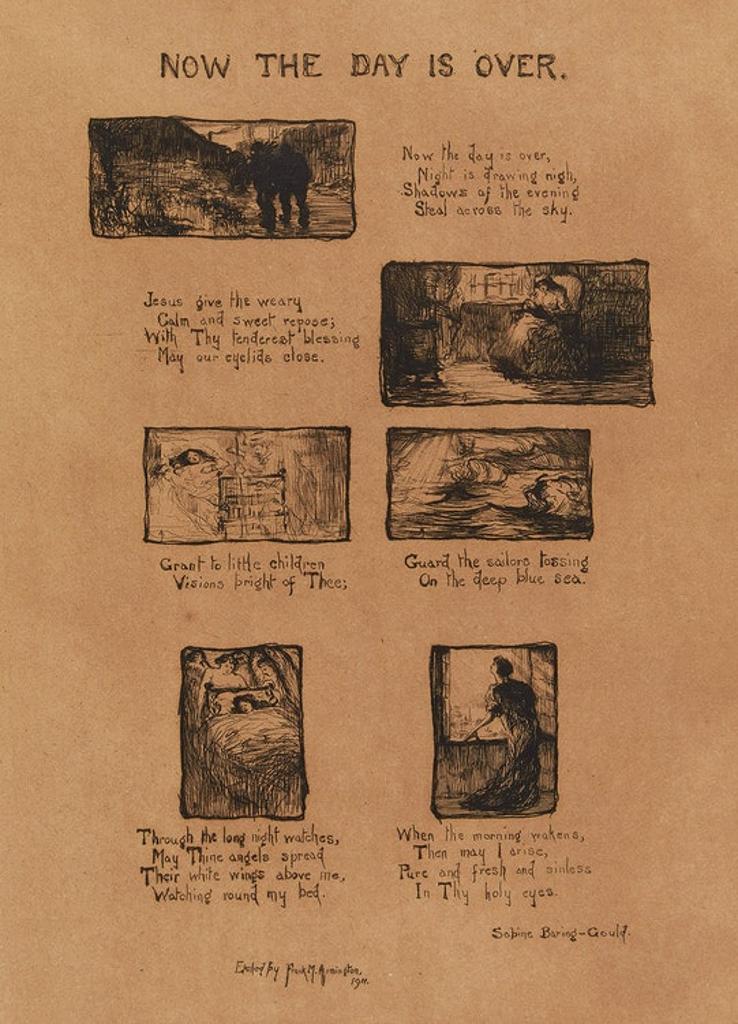 NOW THE DAY IS OVER.
Now the day is over,
Night is drawing nigh,
Shadows of the evening
Steal across the sky.
Jesus give the weary
Calm and sweet repose;
With Thy tenderest blessing
May our eyelids close.
Grant to little children
Visions bright of Thee;
Guard the sailors tossing
On the deep blue sea.
Through the long night watches,
May Thine angels spread
Their white wings above me,
Watching round my bed.
When the morning wakens,
Then may I arise,
Pure and fresh and sinless
In Thy holy eyes.
Sabine Baring-Gould.
Etched by Frank M. Armington,
1911.